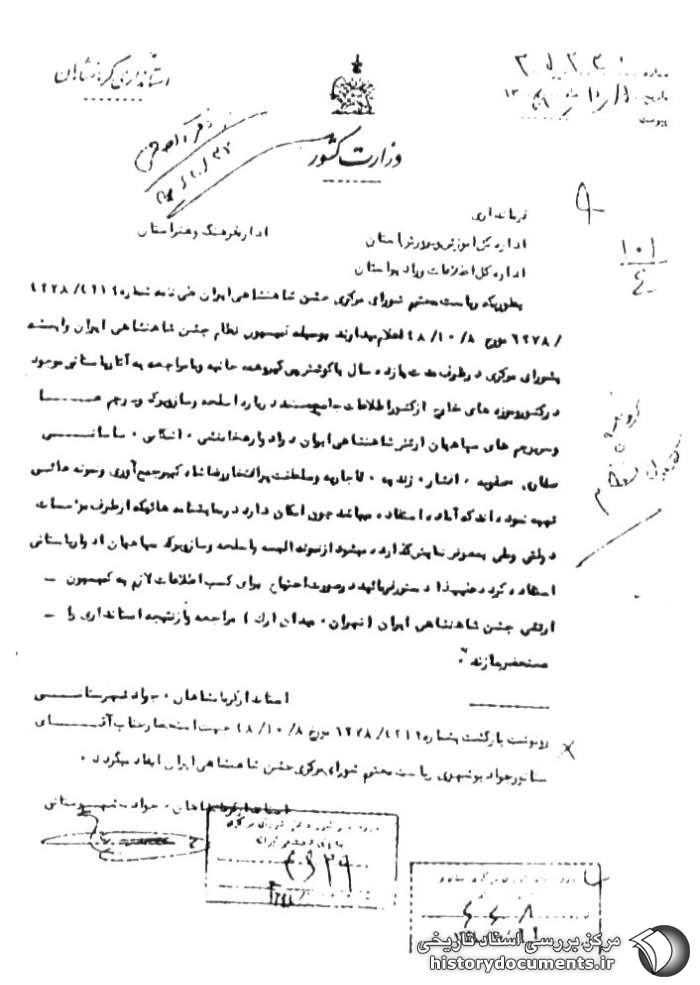 استانداری کرمانشاهان
شماره
تاریخ
پیوست
وزارت کشور
فرمانداری
اداره کل آموزش و پرورش استان
اداره فرهنگ و هنر استان
اداره کل اطلاعات و رادیو استان
بطوریکه ریاست محترم شورای مرکزی جشن شاهنشاهی ایران طی نامه شماره
مورخ ۴۸/۱۰/۸ اعلام میدارند بوسیله کمیسیون نظام جشن شاهنشاهی ایران وابسته
بشورای مرکزی در ظرف مدت یازده سال با کوشش پی گیر و همه جانبه و با مراجعه به آثار باستانی موجود
در کشور و موزه های خارج از کشور اطلاعات جامع و مستند درباره اسلحه و ساز و برگ و پرچم ها
و سرپرچم های سپاهیان ارتش شاهنشاهی ایران در ادوار هخامنشی ، اشکانی ، ساسانی
صفاری صفویه ، افشار ، زندیه ، قاجاریه و سلطنت پر افتخار رضا شاه کبیر جمع آوری و نمونه هائی
تهیه نموده اند که آماده استفاده میباشد چون امکان دارد در نمایشنامه هائیکه از طرف مؤسسات
دولتی و ملی بمعرض نمایش گذارده میشود از نمونه البسه یا سلحه و ساز و برگ سپاهیان ادوار باستانی
استفاده گردد علیهذا دستور فرمائید در صورت احتیاج برای کسب اطلاعات لازم به کمیسیون
ارتش جشن شاهنشاهی ایران ( تهران ، میدان ارک ) مراجعه و از نتیجه استانداری را
مستحضر سازند .
استاندار کرمانشاهان ، جواد شهرستانی
رونوشت بازگشت بشماره مورخ ۴۸/۱۰/۸ جهت استحضار جناب آقای
سناتور جواد بوشهری ریاست محترم شورای مرکزی جشن شاهنشاهی ایران ایفاد میگردد .
استاندار کرمانشاهان ، جواد شهرستانی
۴۴۸
مرکز بررسی اسناد تاریخی
historydocuments.ir